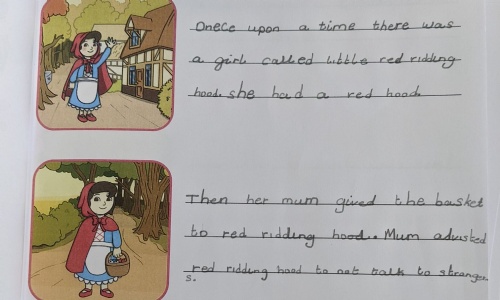 Onece upon a time there was
a girl called little red ridding
hood. she had a red hood
Then her mum gived the basket
to red ridding hood. Mum advised
red ridding hood to not talk to stranger
s.